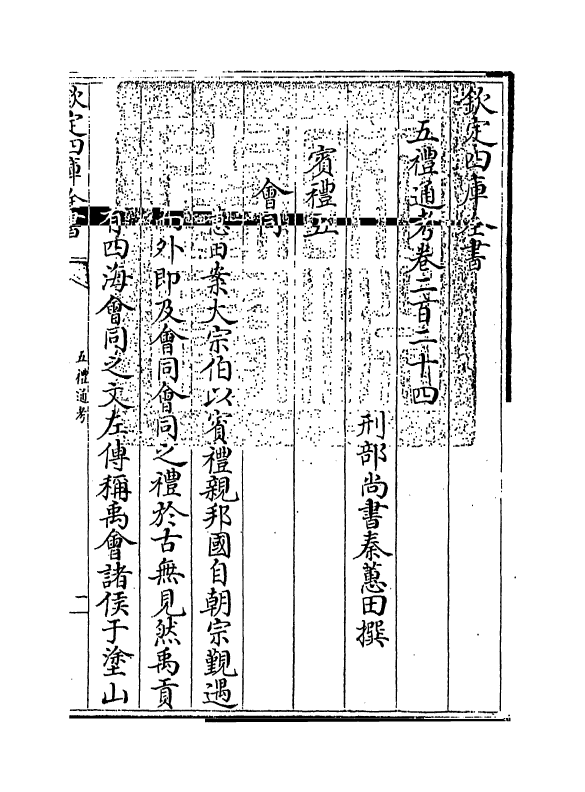 欽定四庫全書
五禮通考卷二百二十四
刑部尚書秦蕙田撰
賓禮五
會同
蕙田案大宗伯以賓禮親邦國自朝宗覲遇
而外即及會同會同之禮於古無見然禹貢
有四海會同之文左傳稱禹會諸侯于塗山
欽定四庫全書
五禮通考